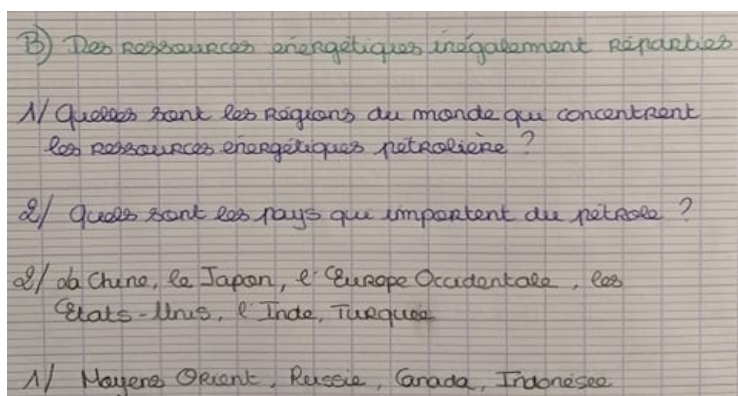 B) Des Ressources énergétiques inégalement Réparties
1/ Quelles sont les Régions du monde qui concentrent
les Ressources énergétiques pétrolière ?
2/ Quels sont les pays qui importent du pétrole ?
2/ La Chine, le Japon, l'Europe Occidentale, les
Etats-Unis, l'Inde, Turquie
1/ Moyens Orient, Russie, Canada, Indonésie